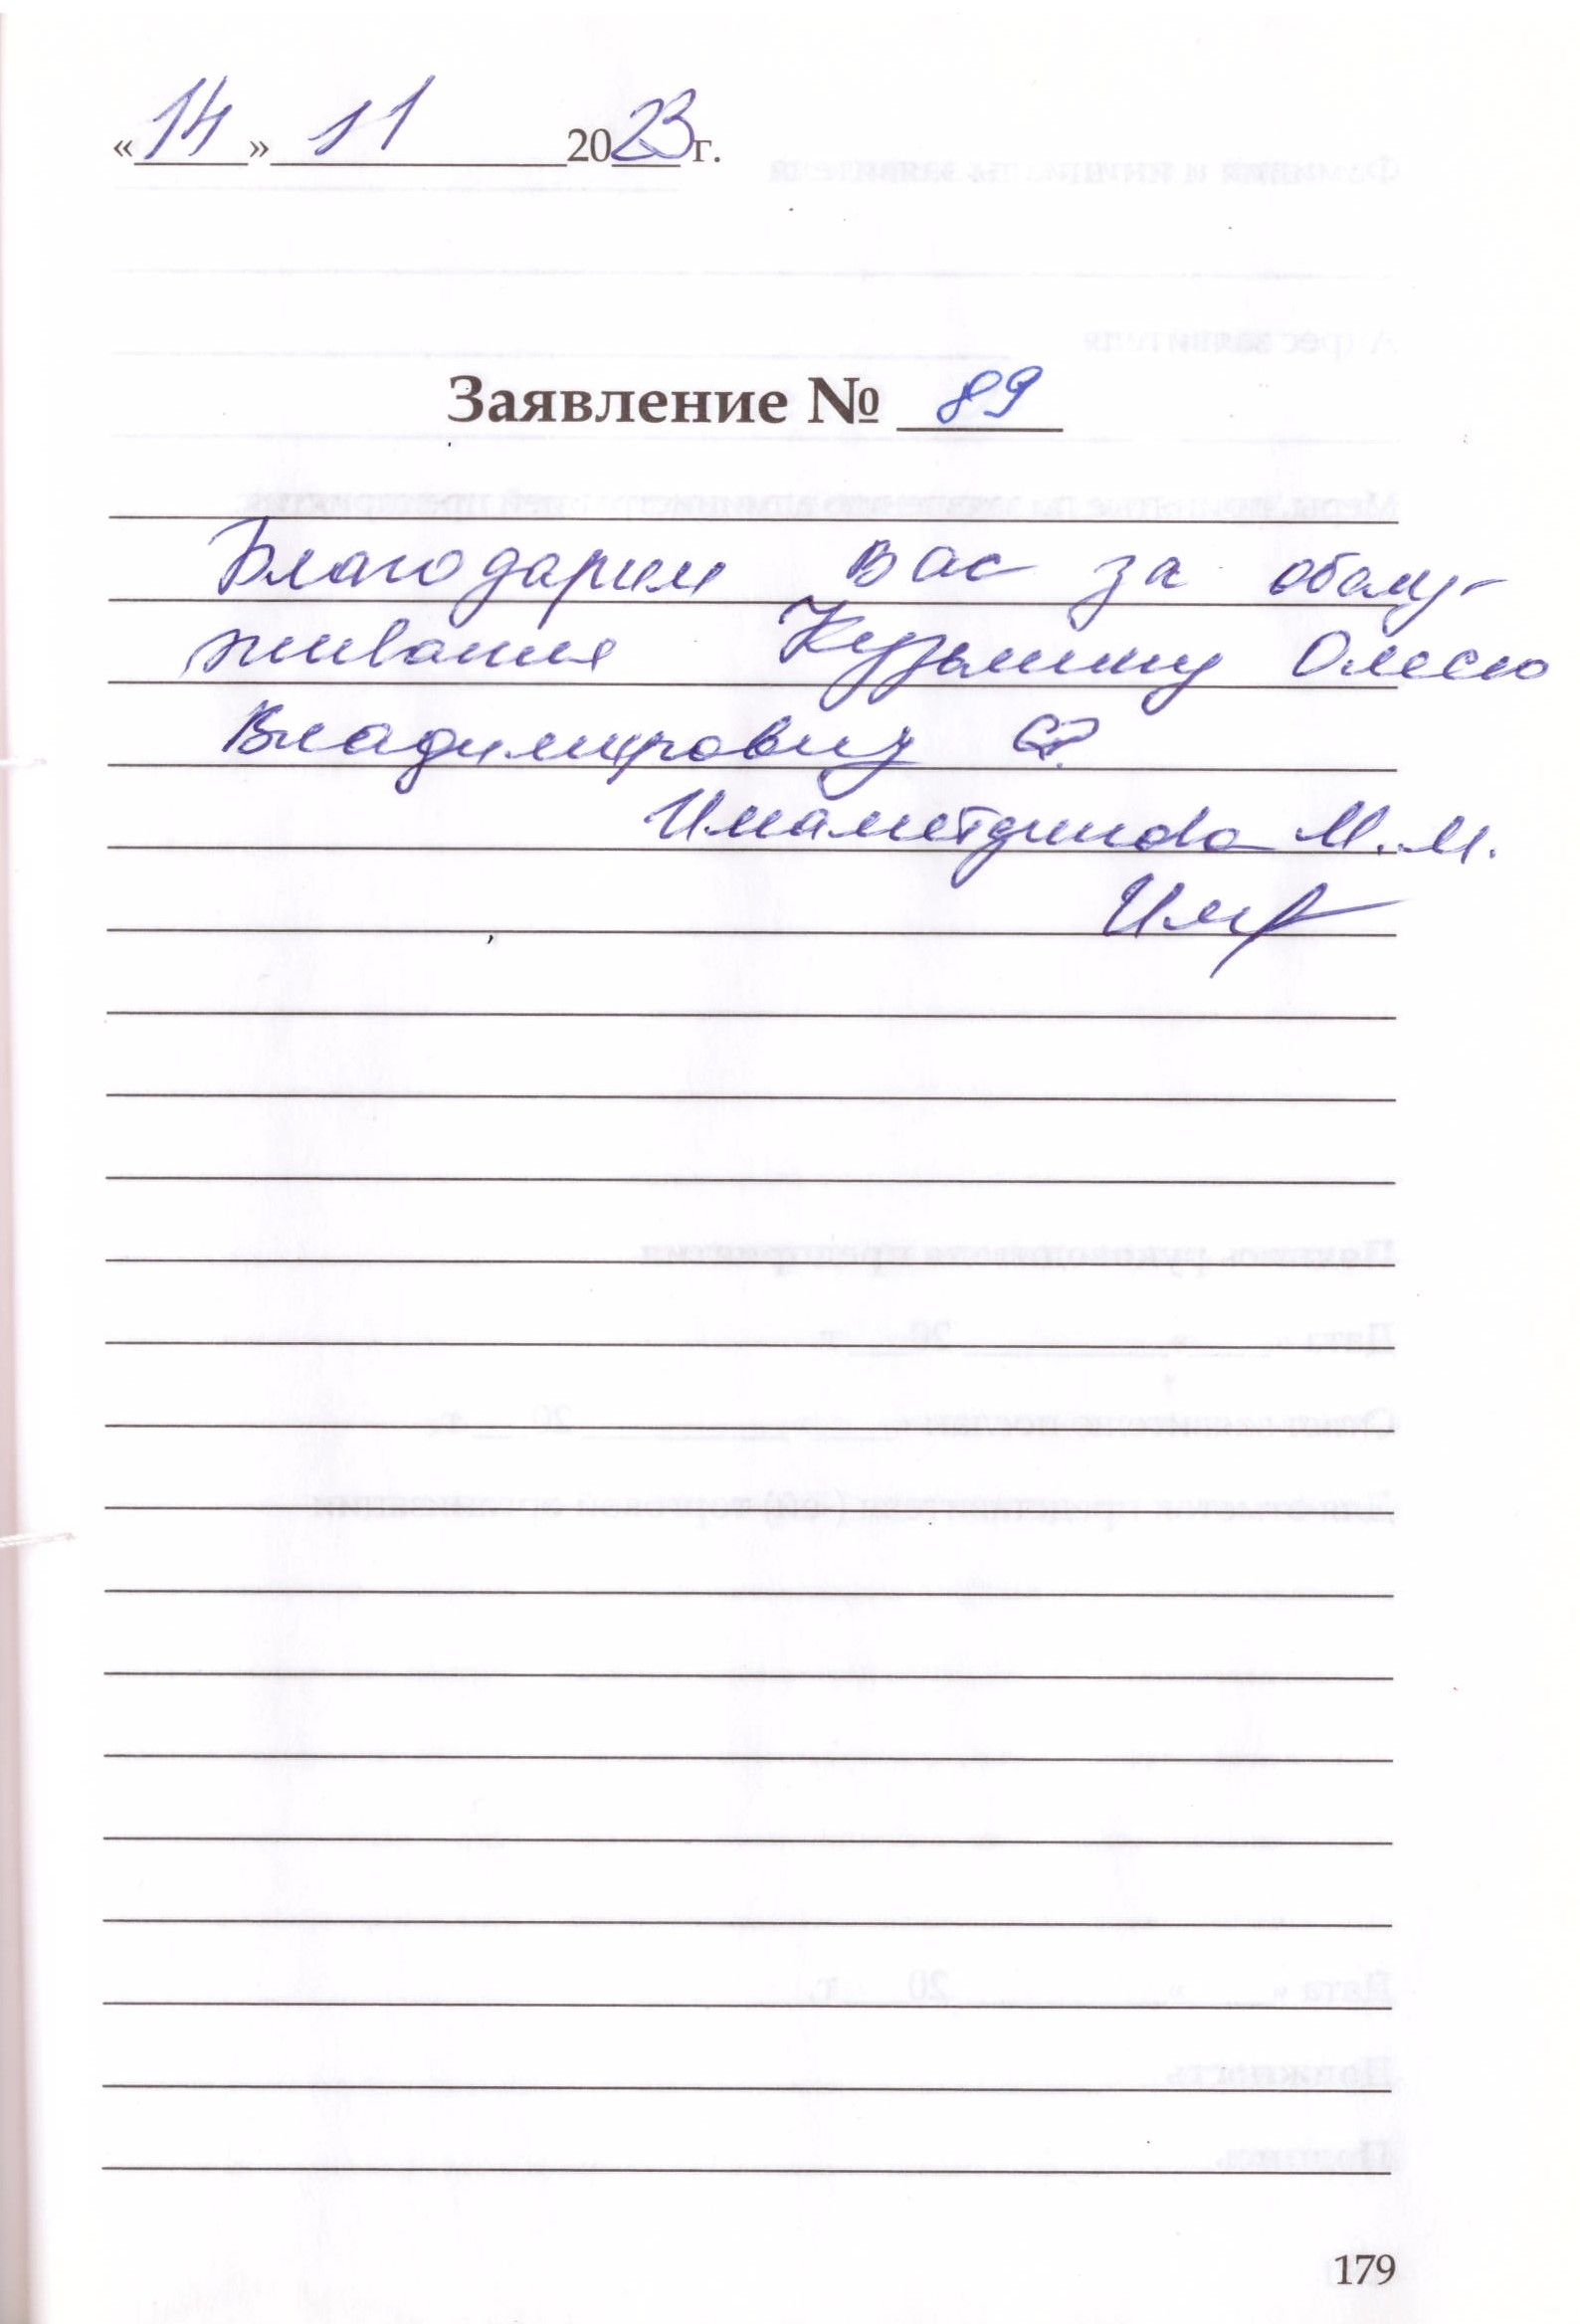 «14» 11 2023 г.
Заявление № 89
Благодарим вас за обслу-
живания Кузьмину Олесю
Владимировну
Имаметдинова М.М.
179